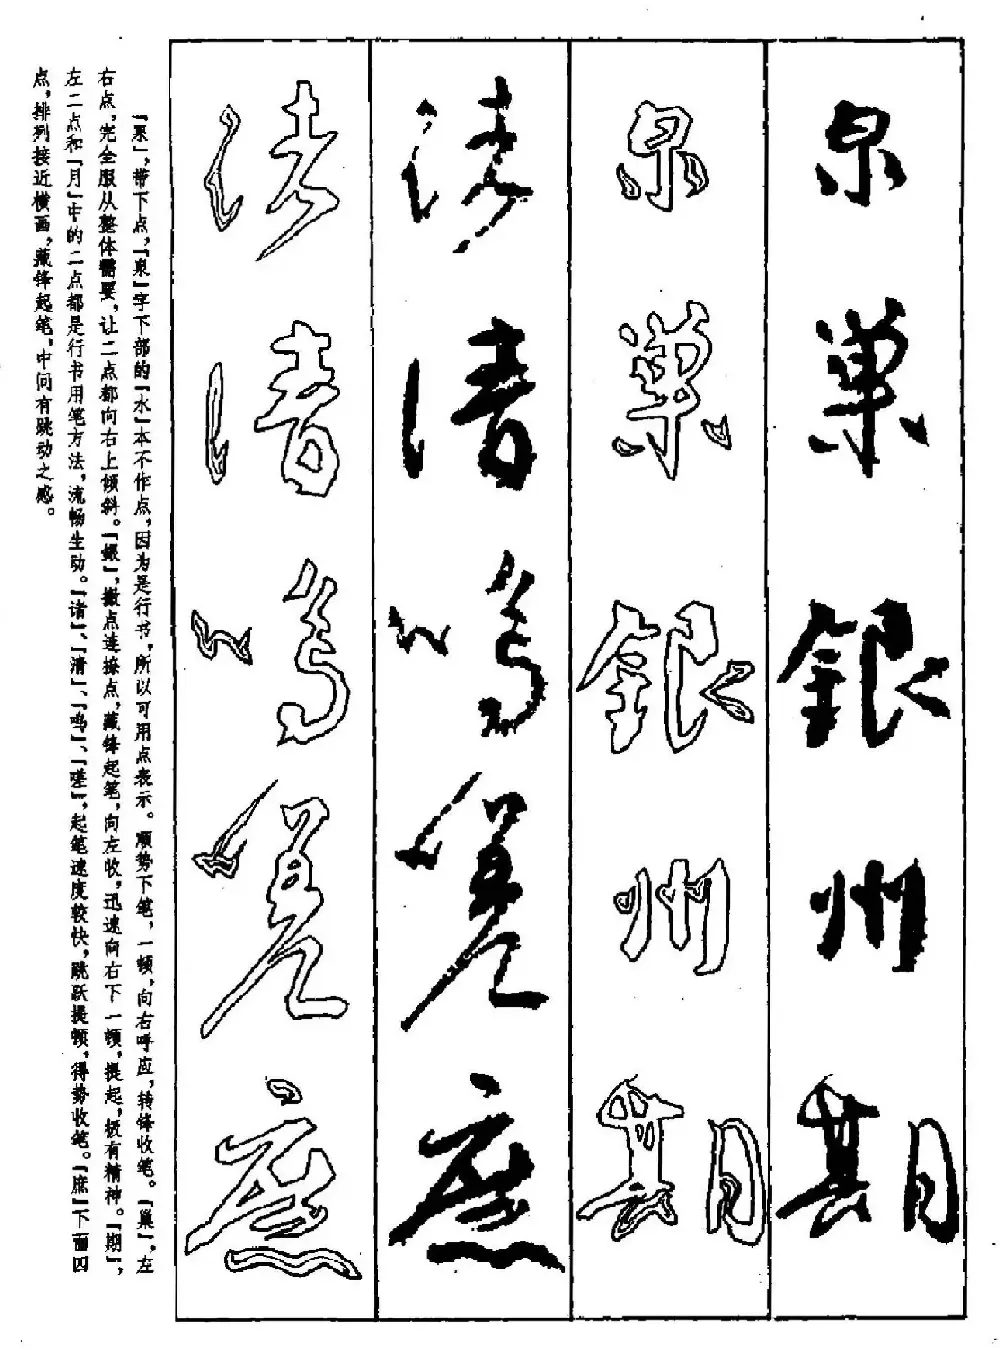 泉巢銀州期
泉巢銀州期
诸清鸣嗟庶
诸清鸣嗟庶
「泉」，带下点，「泉」字下部的「水」本不作点，因为是行书，所以可用点表示。顺势下笔，一顿，向右呼应，转锋收笔。「巢」，左
右点，完全服从整体需要，让二点都向右上倾斜。「银」，撇点连捺点，藏锋起笔，向左收，迅速向右下一顿，提起，极有精神。「期」，
左二点和「月」中的二点都是行书用笔方法，流畅生动。「诸」、「清」、「鸣」、「嗟」，起笔速度较快，跳跃提顿，得势收笔。「庶」下面四
点，排列接近横画，藏锋起笔，中间有跳动之感。